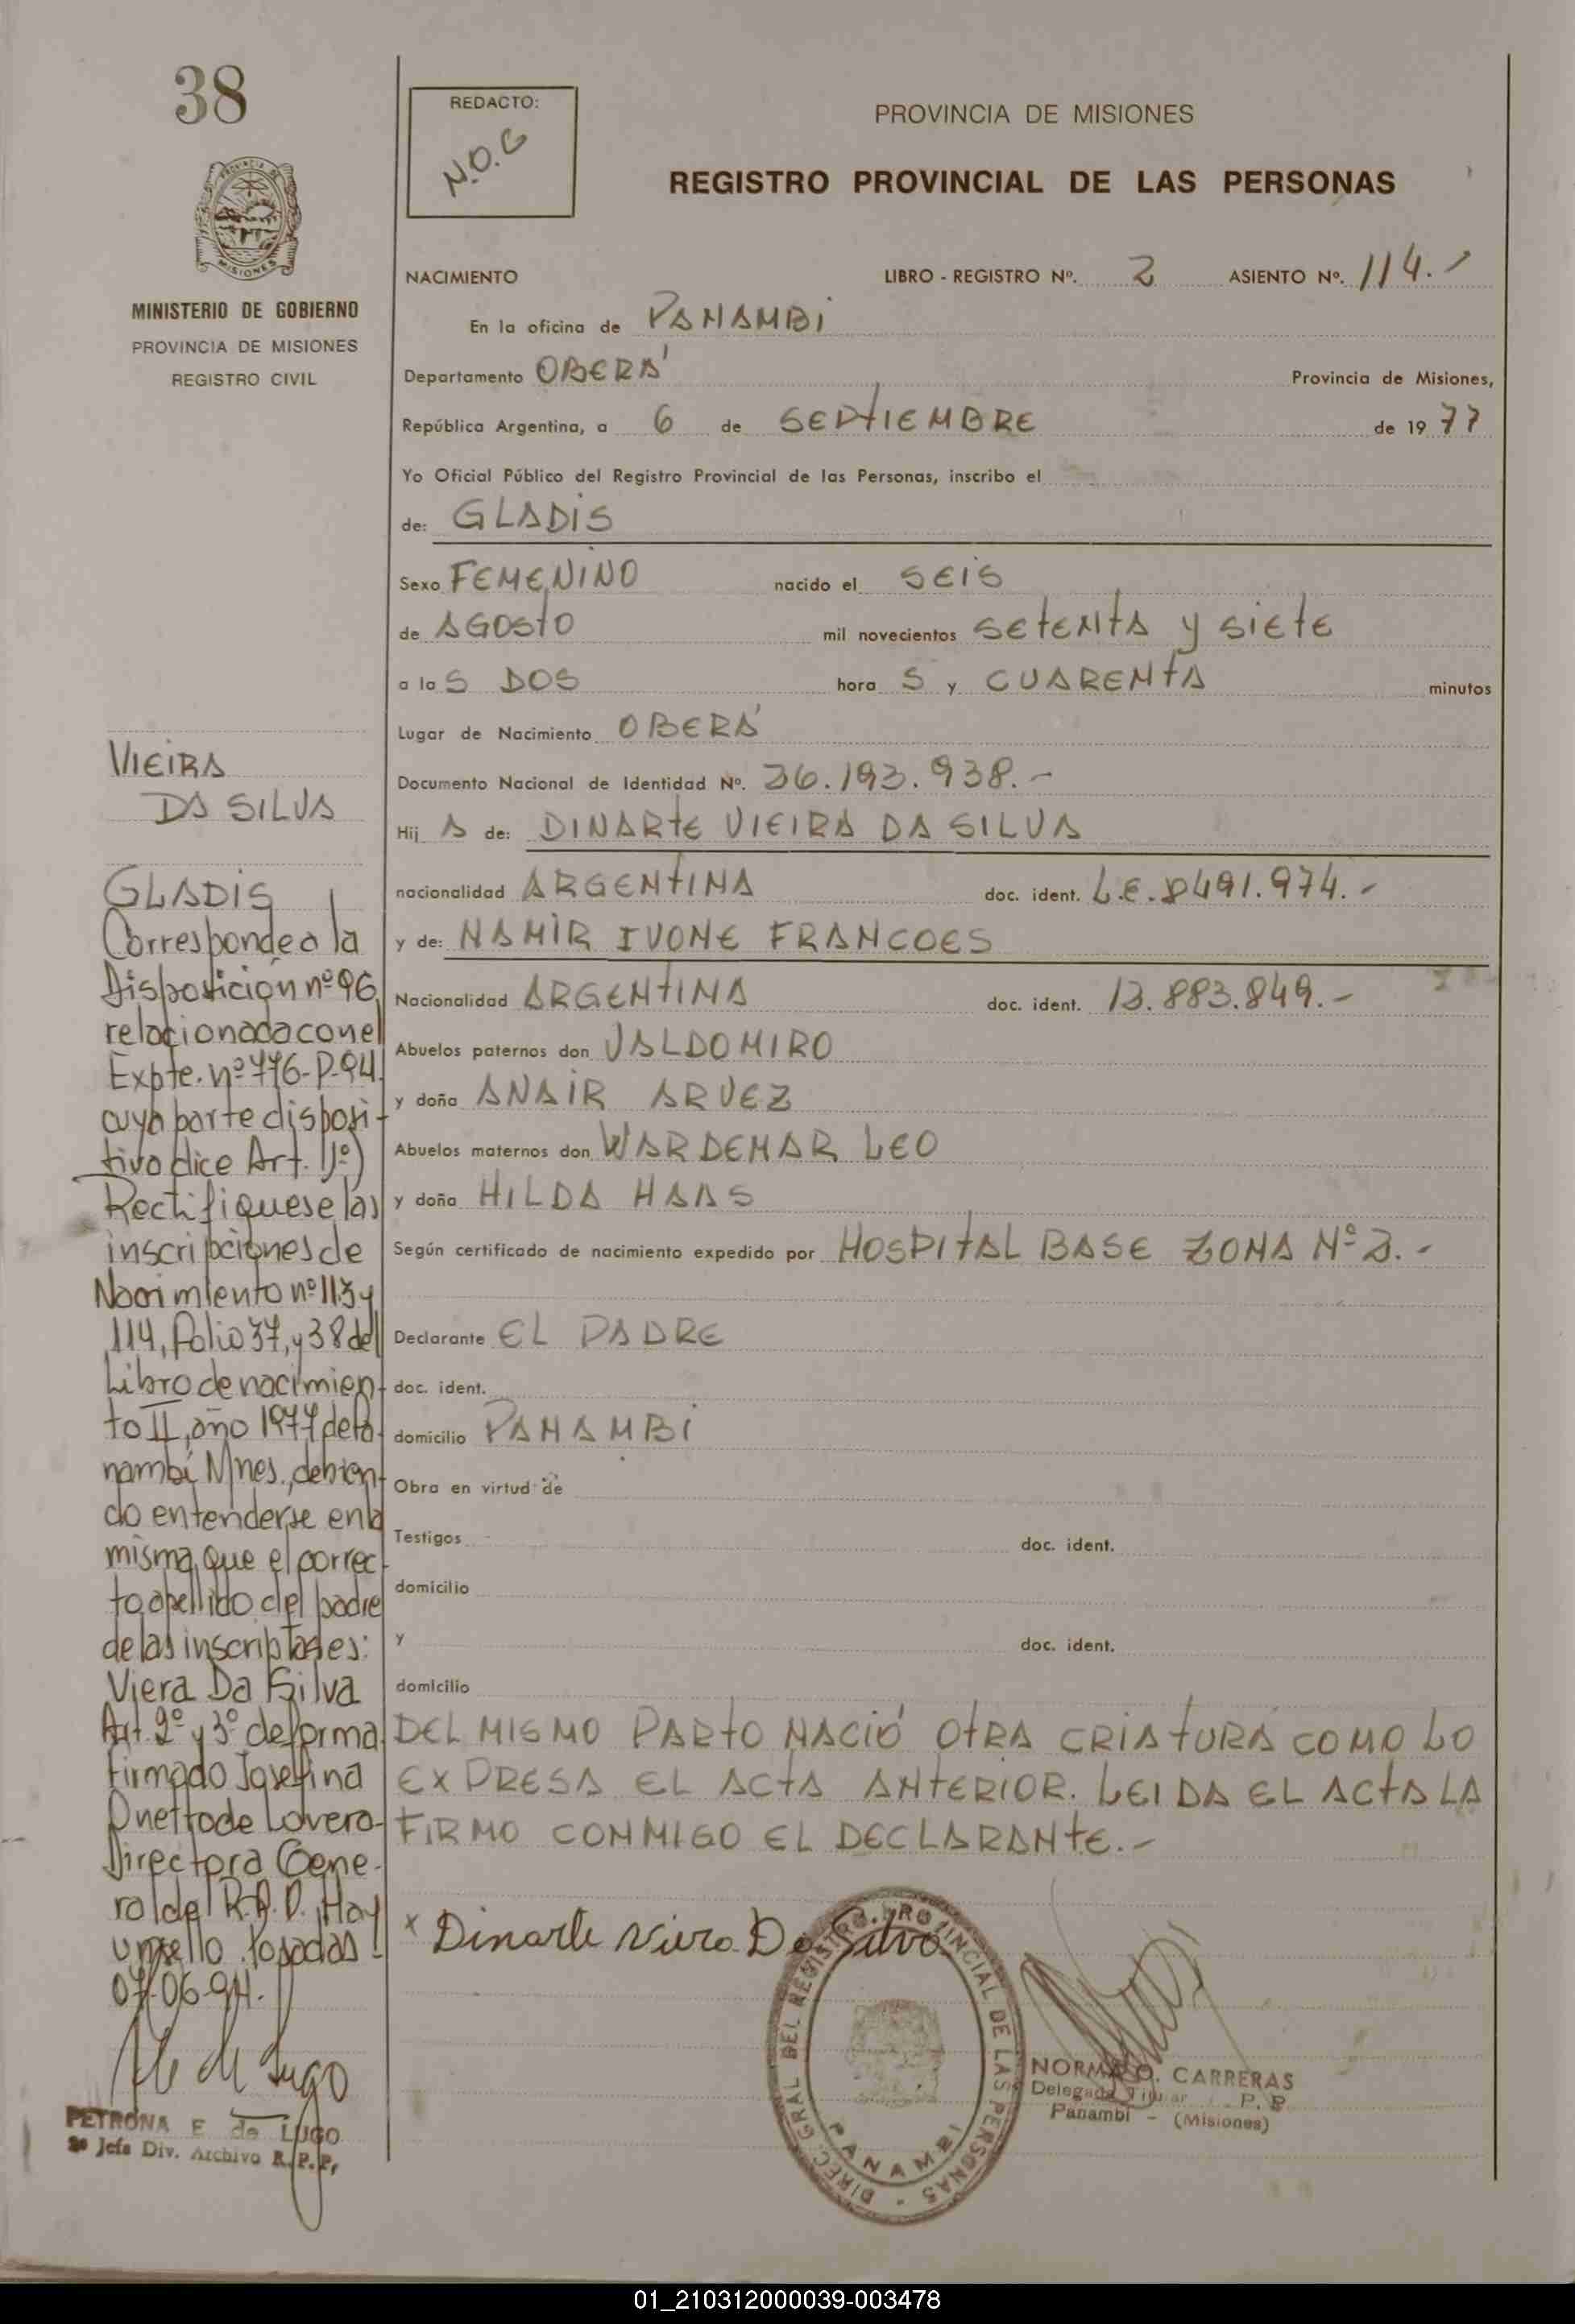 38
MINISTERIO DE GOBIERNO
PROVINCIA DE MISIONES
REGISTRO CIVIL
REDACTO:
N.O.C
PROVINCIA DE MISIONES
REGISTRO PROVINCIAL DE LAS PERSONAS
NACIMIENTO LIBRO - REGISTRO Nº. 2 ASIENTO Nº. 114.
En la oficina de PANAMBI
Departamento OBERÁ Provincia de Misiones,
República Argentina, a 6 de SEPTIEMBRE de 19 77
Yo Oficial Público del Registro Provincial de las Personas, inscribo el
de: GLADIS
Sexo FEMENINO nacido el SEIS
de AGOSTO mil novecientos SETENTA y SIETE
a la S DOS hora S y CUARENTA minutos
Lugar de Nacimiento OBERÁ
Documento Nacional de Identidad Nº. 26.193.938.-
Hij A de: DINARTE VIEIRA DA SILVA
nacionalidad ARGENTINA doc. ident. L.E. 8491.974.-
y de: NAMIR IVONE FRANCOES
Nacionalidad ARGENTINA doc. ident. 13.883.849.-
Abuelos paternos don VALDOMIRO
y doña ANAIR ARVEZ
Abuelos maternos don WARDEMAR LEO
y doña HILDA HAAS
Según certificado de nacimiento expedido por HOSPITAL BASE ZONA Nº 3.-
Declarante EL PADRE
doc. ident.
domicilio PANAMBI
Obra en virtud de
Testigos doc. ident.
domicilio
y doc. ident.
domicilio
DEL MISMO PARTO NACIÓ OTRA CRIATURA COMO LO
EXPRESA EL ACTA ANTERIOR. LEIDA EL ACTA LA
FIRMO CONMIGO EL DECLARANTE.-
x Dinarte Viera Da Silva
DIREC. GRAL DEL REGISTRO PROVINCIAL DE LAS PERSONAS -
PANAMBI
NORMA O. CARRERAS
Delegada Titular P. P
Panambi - (Misiones)
VIEIRA
DA SILVA
GLADIS
Corresponde a la
Disposición nº 96
relacionada con el
Expte. nº 776-P-94.
cuya parte disposi-
tiva dice Art. 1º)
Rectifiquese las
inscripciones de
Nacimiento nº 113 y
114, Folio 37, y 38 del
Libro de nacimien-
to II, año 1977 de Pa-
nambí Mnes., debien-
do entenderse en la
misma que el correc-
to apellido del padre
de las inscriptas es:
Viera Da Silva
Art. 2º y 3º de forma
Firmado Josefina
Pnetto de Lovera-
Directora Gene-
ral del R.P.P. Hay
un sello. Posadas
07-06-94.
PETRONA E de LUGO
Jefa Div. Archivo R.P.P,
01_210312000039-003478